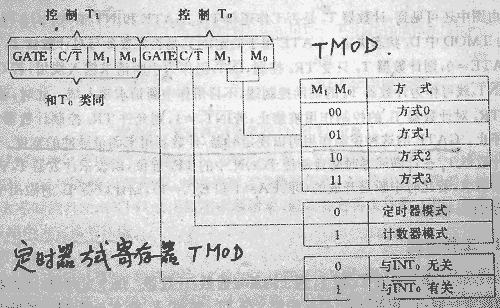 控 制 T₁ 控 制 T₀
GATE C/T̅ M₁ M₀ GATE C/T̅ M₁ M₀
TMOD.
和T₀ 类同
M₁ M₀ 方 式
00 方式0
01 方式1
10 方式2
11 方式3
0 定时器模式
1 计数器模式
0 与I̅N̅T̅₀ 无关
1 与I̅N̅T̅₀ 有关
定时器方式寄存器 TMOD